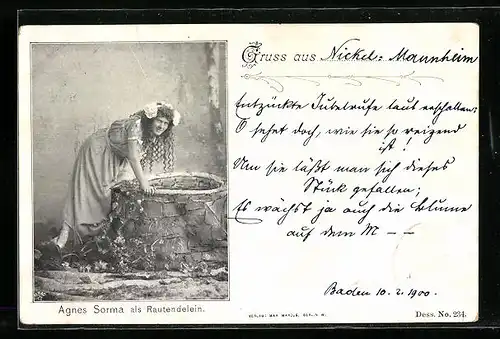 Gruss aus Nickel-Mannheim
Entzückte Jubelrufe laut erschallen:
O sehet doch, wie sie so reizend
ist!
Um sie läßt man sich dieses
Stück gefallen;
Es wächst ja auch die Blume
auf dem M – –
Baden 10.2.1900.
Agnes Sorma als Rautendelein.
VERLAG: MAX MARCUS, BERLIN. W.
Dess. No. 234.